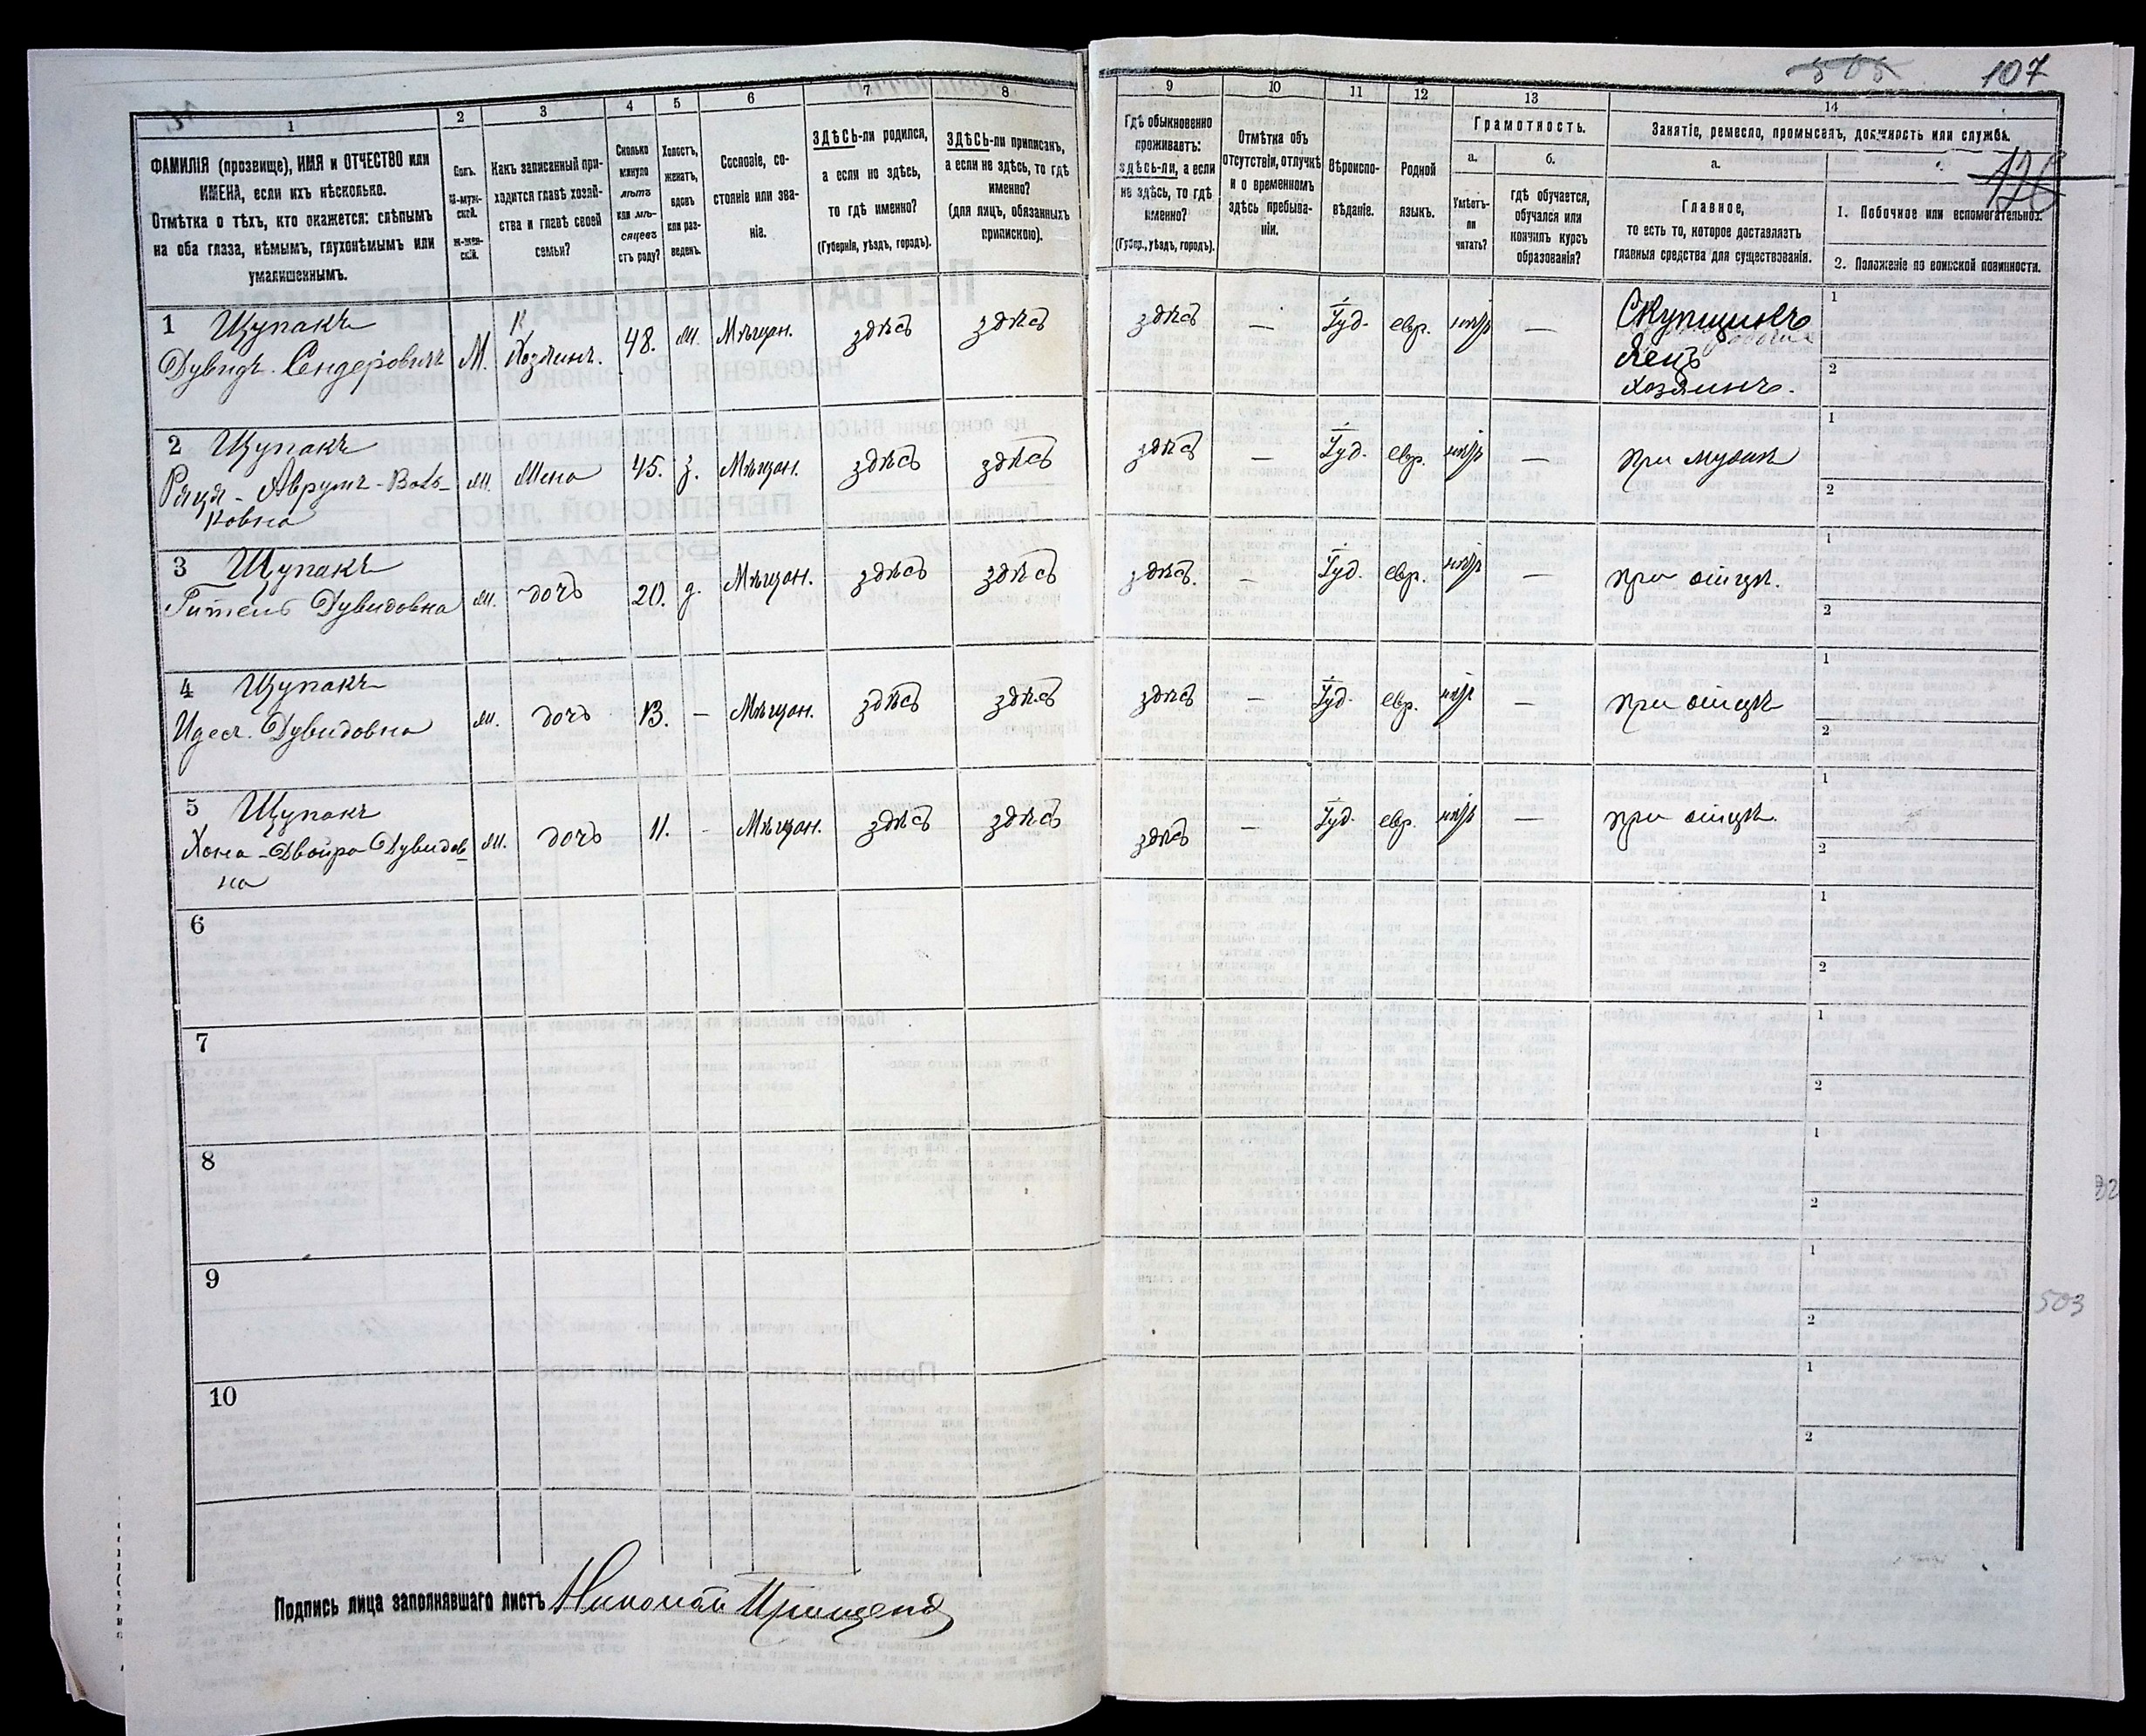 505 107
1 2 3 4 5 6 7 8 9 10 11 12 13 14
ФАМИЛІЯ (прозвище), ИМЯ и ОТЧЕСТВО или
ИМЕНА, если ихъ нѣсколько.
Отмѣтка о тѣхъ, кто окажется: слѣпымъ
на оба глаза, нѣмымъ, глухонѣмымъ или
умалишеннымъ.
Полъ.
М-муж-
ской.
Ж-жен-
скій.
Какъ записанный при-
ходится главѣ хозяй-
ства и главѣ своей
семьи?
Сколько
минуло
лѣтъ
или мѣ-
сяцевъ
отъ роду?
Холостъ,
женатъ,
вдовъ
или раз-
веденъ.
Сословіе, со-
стояніе или зва-
ніе.
ЗДѢСЬ-ли родился,
а если не здѣсь,
то гдѣ именно?
(Губернія, уѣздъ, городъ).
ЗДѢСЬ-ли приписанъ,
а если не здѣсь, то гдѣ
именно?
(для лицъ, обязанныхъ
припискою).
Гдѣ обыкновенно
проживаетъ:
здѣсь-ли, а если
не здѣсь, то гдѣ
именно?
(Губер., уѣздъ, городъ).
Отмѣтка объ
отсутствіи, отлучкѣ
и о временномъ
здѣсь пребыва-
ніи.
Вѣроиспо-
вѣданіе.
Родной
языкъ.
Грамотность.
а. б.
Умѣетъ-
ли
читать?
гдѣ обучается,
обучался или
кончилъ курсъ
образованія?
Занятіе, ремесло, промыселъ, должность или служба.
а.
Главное,
то есть то, которое доставляетъ
главныя средства для существованія.
126
1. Побочное или вспомогательное.
2. Положеніе по воинской повинности.
1 Щупакъ
Дувидъ Сендеровичъ М. К Хозяинъ. 48. Мѣщан. здѣсь здѣсь здѣсь — Іуд. евр. — Скупщикъ
Яецъ
хозяинъ. 1 2
2 Щупакъ
Аврумъ-Воль-
ковна жена 45. з. Мѣщан. здѣсь здѣсь здѣсь — Іуд. евр. — при мужѣ 1 2
3 Щупакъ
Гитель Дувидовна дочь 20. д. Мѣщан. здѣсь здѣсь здѣсь. — Іуд. евр. — при отцѣ. 1 2
4 Щупакъ
Идесъ Дувидовна дочь 13. — Мѣщан. здѣсь здѣсь здѣсь — Іуд. евр. — при отцѣ 1 2
5 Щупакъ
Хона-Двойра Дувидов
на дочь 11. - Мѣщан. здѣсь здѣсь здѣсь — Іуд. евр. — при отцѣ. 1 2
6 1 2
7 1 2
8 1 2
9 1 2
503
10 1 2
Подпись лица заполнявшаго листъ Николай